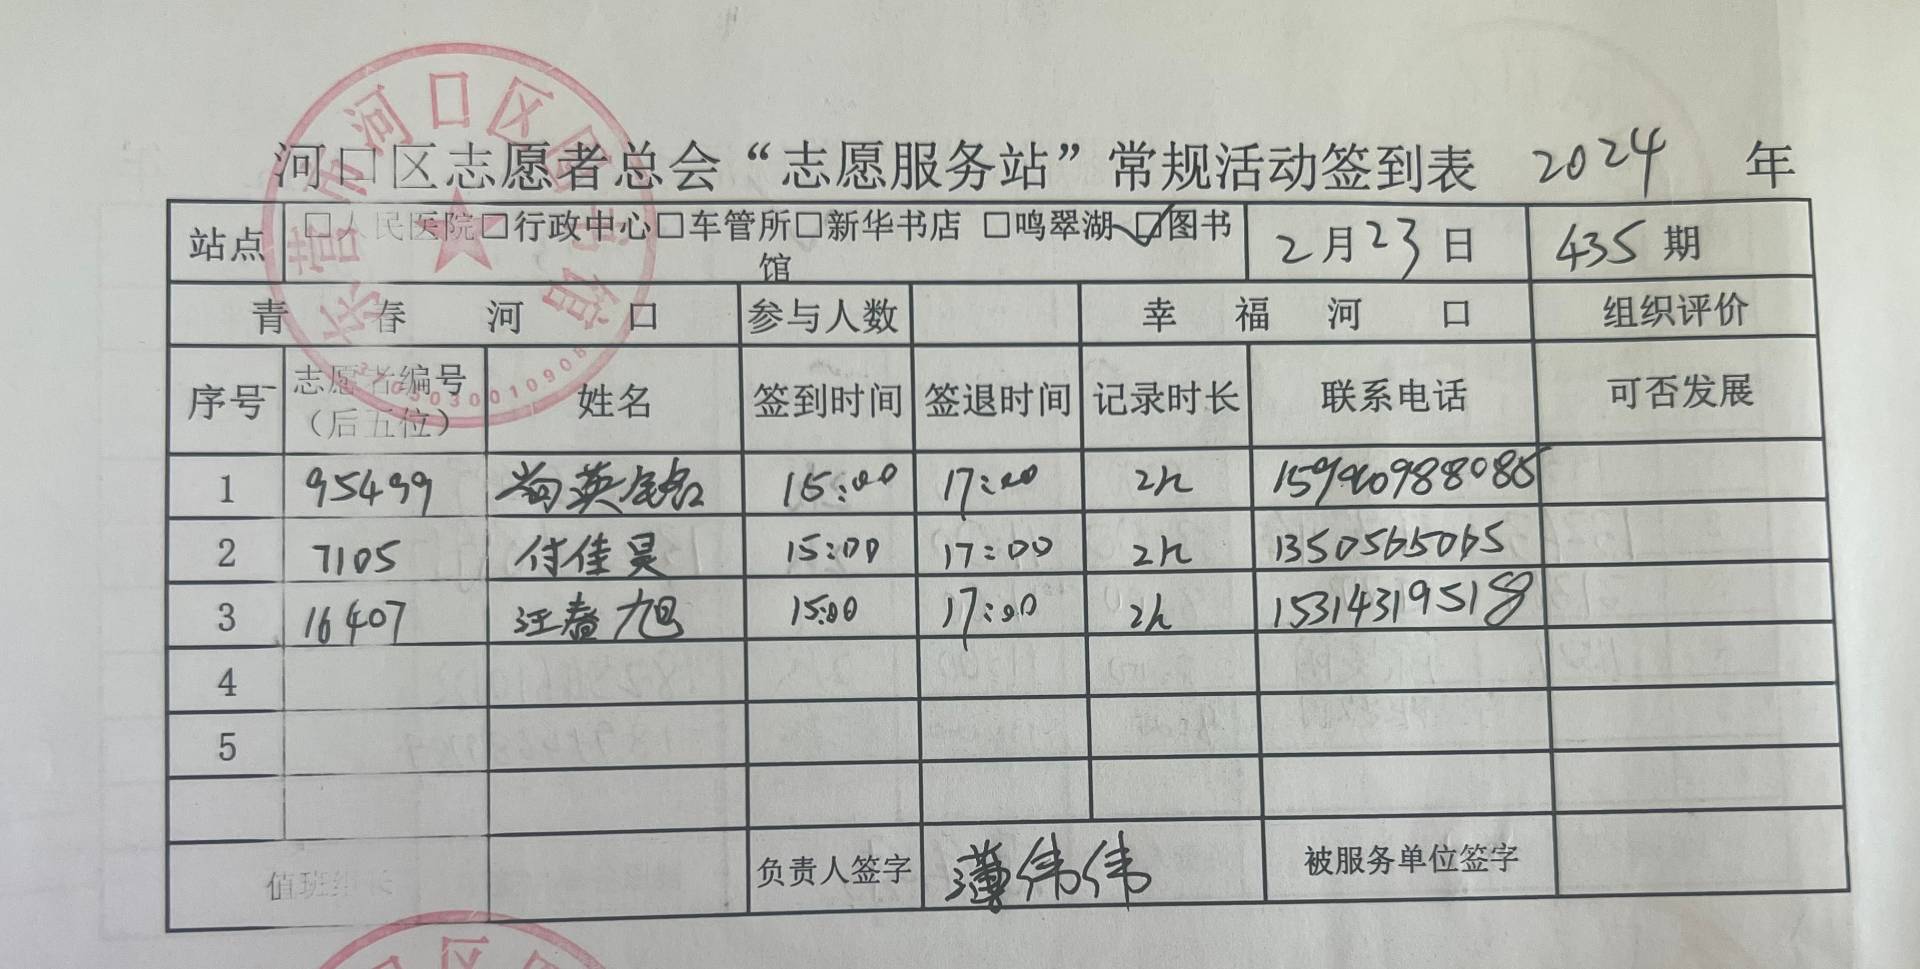 河口区志愿者总会“志愿服务站”常规活动签到表 2024 年
站点 □人民医院□行政中心□车管所□新华书店 □鸣翠湖 ☑图书馆 2月23日 435期
青春河口 参与人数 幸福河口 组织评价
序号 志愿者编号（后五位） 姓名 签到时间 签退时间 记录时长 联系电话 可否发展
1 95499 15:00 17:00 2h
2 7105 付佳昊 15:00 17:00 2h 13505665065
3 16407 汪春旭 15:00 17:00 2h 15314319518
4
5
值班组长 负责人签字 薄伟伟 被服务单位签字
东营市河口区图书馆
河口区图